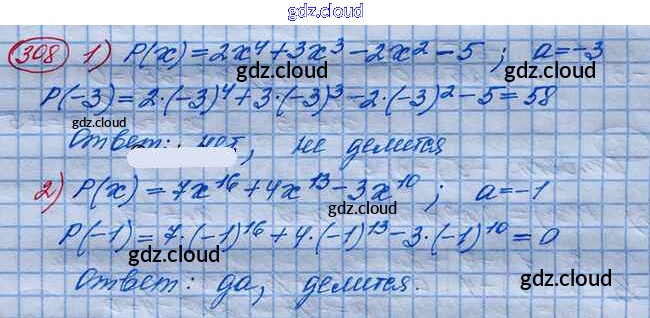 gdz.cloud
308 1) P(x)=2x⁴+3x³-2x²-5; a=-3
gdz.cloud gdz.cloud
P(-3)=2·(-3)⁴+3·(-3)³-2·(-3)²-5=58
gdz.cloud gdz.cloud
Ответ: нет, не делится
2) P(x)=7x¹⁶+4x¹³-3x¹⁰; a=-1
gdz.cloud gdz.cloud
P(-1)=7·(-1)¹⁶+4·(-1)¹³-3·(-1)¹⁰=0
gdz.cloud
Ответ: да, делится.
gdz.cloud gdz.cloud